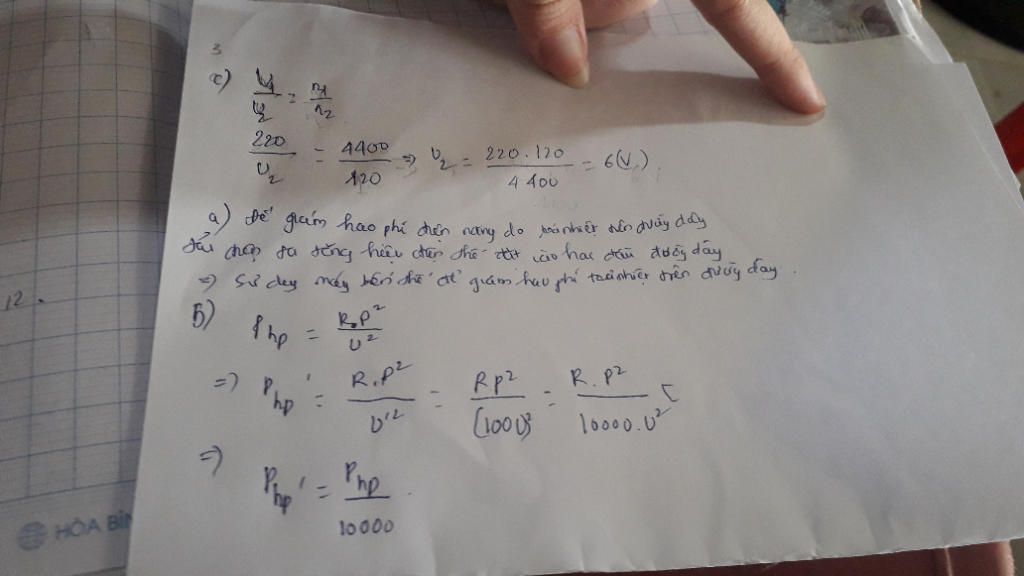 3
c) U1/U2 = n1/n2
220/U2 = 4400/120 => U2 = 220.120/4400 = 6(V)
a) Để giảm hao phí điện năng do toả nhiệt trên đường dây
ta tăng hiệu điện thế đặt vào hai đầu đường dây
=> Sử dụng máy biến thế để giảm hao phí toả nhiệt trên đường dây.
12.
b) Php = R.P²/U²
=> Php' = R.P²/U'² = RP²/(100U)² = R.P²/10000.U²
=> Php' = Php/10000.
HÒA BÌN